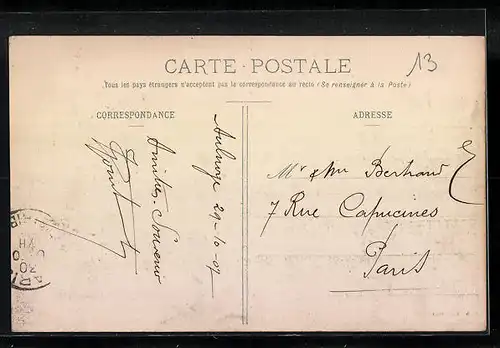 CARTE POSTALE
13
Tous les pays étrangers n'acceptent pas la correspondance au recto (Se renseigner à la Poste)
CORRESPONDANCE
ADRESSE
Aulnoye 29-10-07
Amitiés - Souvenir
Mr & Mme Bertrand
7 Rue Capucines
Paris